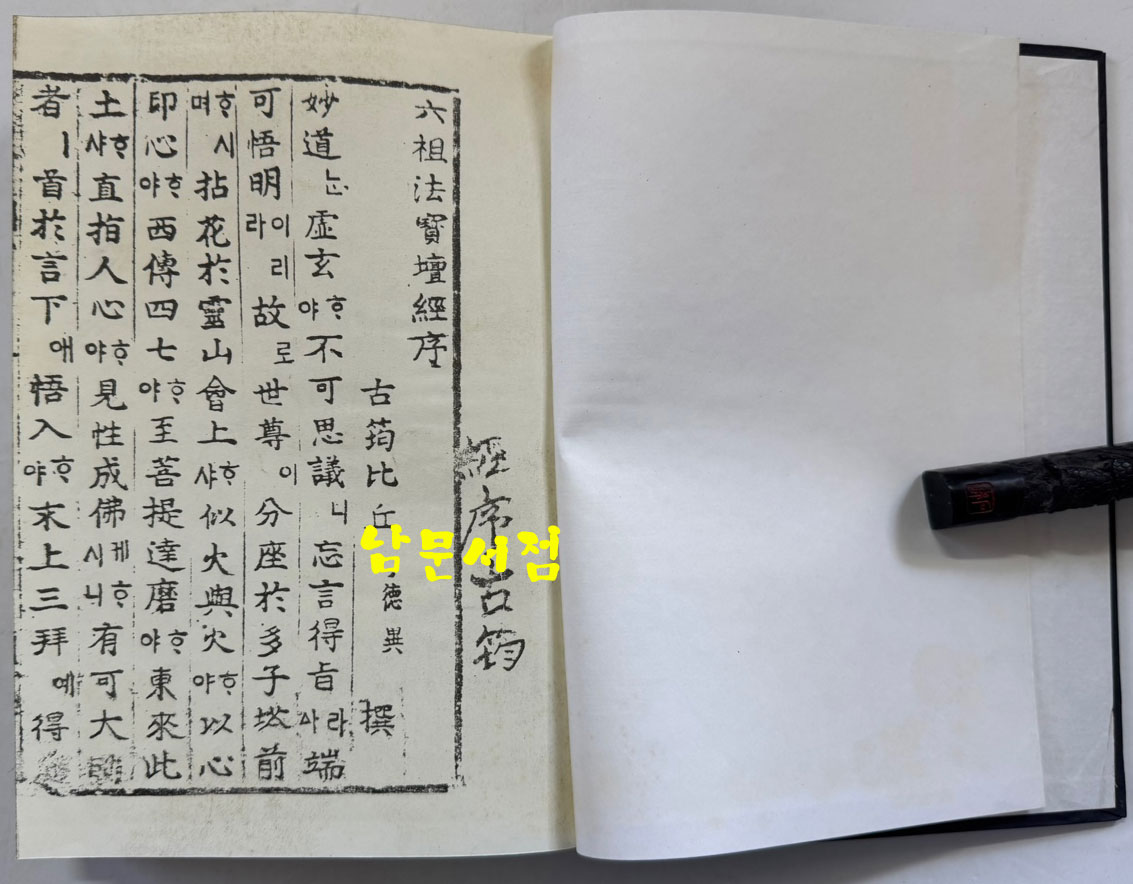 經序 古筠
六祖法寶壇經序
古筠比丘 德異 撰
妙道ᄂᆞᆫ虛玄ᄒᆞ야不可思議니忘言得旨라ᅀᅡ端
可悟明이리라故로世尊이分座於多子塔前
ᄒᆞ시며拈花於靈山會上ᄒᆞ샤似火與火ᄒᆞ야以心
印心ᄒᆞ야西傳四七ᄒᆞ야至菩提達磨ᄒᆞ야東來此
土ᄒᆞ샤直指人心ᄒᆞ야見性成佛케ᄒᆞ시니有可大師
者ㅣ首於言下애悟入ᄒᆞ야末上三拜예得
남문서점